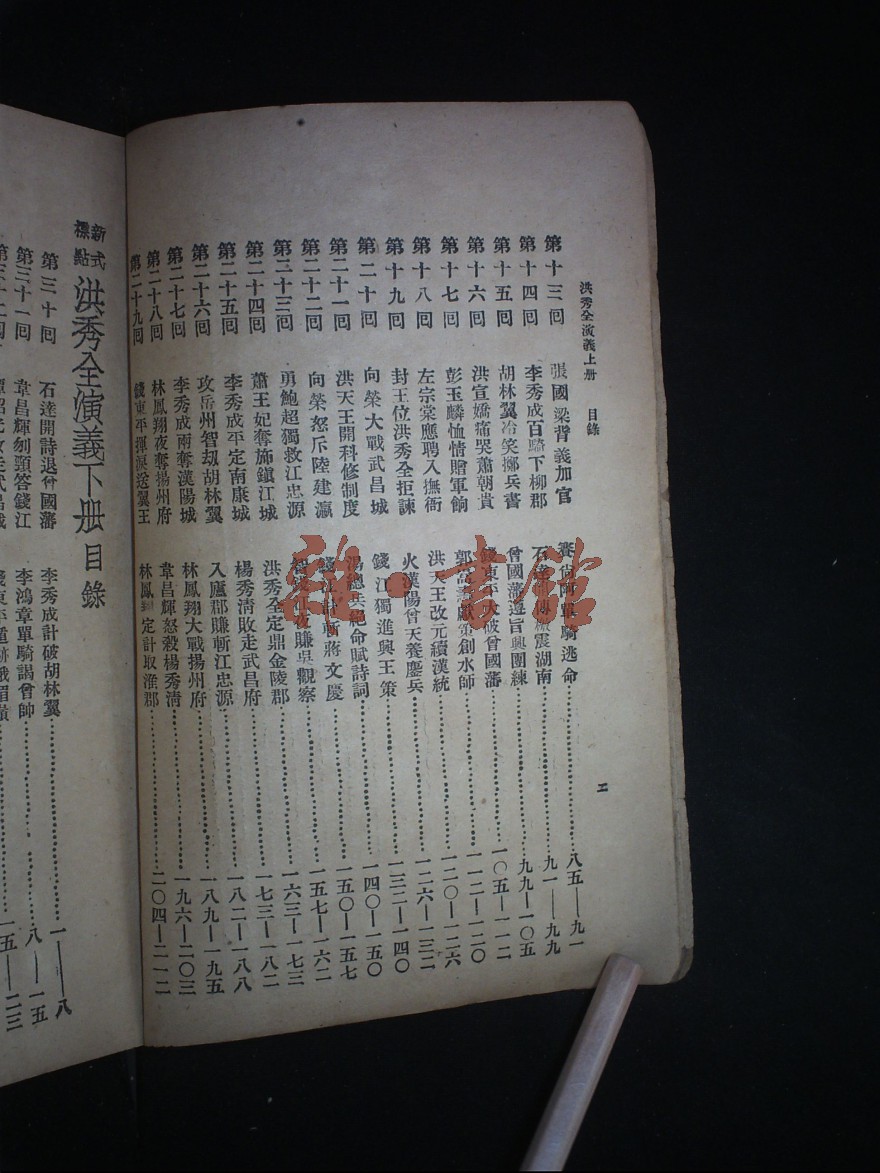 洪秀全演義上册 目錄
二
第十三回 張國梁背義加官 賽尚阿單騎逃命 八五—九一
第十四回 李秀成百騎下柳郡 石達開傳檄震湖南 九一—九九
第十五回 胡林翼冷笑擲兵書 曾國藩遵旨興團練 九九—一〇五
第十六回 洪宣嬌痛哭蕭朝貴 錢東平大破曾國藩 一〇五—一一二
第十七回 彭玉麟恤情贈軍餉 郭嵩燾獻策創水師 一一二—一二〇
第十八回 左宗棠應聘入撫衙 洪天王改元續漢統 一二〇—一二六
第十九回 封王位洪秀全拒諫 火漢陽曾天養鏖兵 一二六—一三二
第二十回 向榮大戰武昌城 錢江獨進興王策 一三二—一四〇
第二十一回 洪天王開科修制度 湯總兵絕命賦詩詞 一四〇—一五〇
第二十二回 向榮怒斥陸建瀛 錢江計斬蔣文慶 一五〇—一五七
第二十三回 勇鮑超獨救江忠源 智錢江夜賺吳觀察 一五七—一六二
第二十四回 蕭王妃奪旆鎮江城 洪秀全定鼎金陵郡 一六三—一七三
第二十五回 李秀成平定南康城 楊秀清敗走武昌府 一七三—一八二
第二十六回 攻岳州智劫胡林翼 入廬郡賺斬江忠源 一八二—一八八
第二十七回 李秀成雨奪漢陽城 林鳳翔大戰揚州府 一八九—一九五
第二十八回 林鳳翔夜奪揚州府 韋昌輝怒殺楊秀清 一九六—二〇三
第二十九回 錢東平揮淚送翼王 林鳳翔定計取淮郡 二〇四—二一二
新式標點 洪秀全演義下册目錄
第三十回 石達開詩退曾國藩 李秀成計破胡林翼 一—八
第三十一回 韋昌輝刎頸答錢江 李鴻章單騎謁曾帥 八—一五
一五—二三
雜·書館